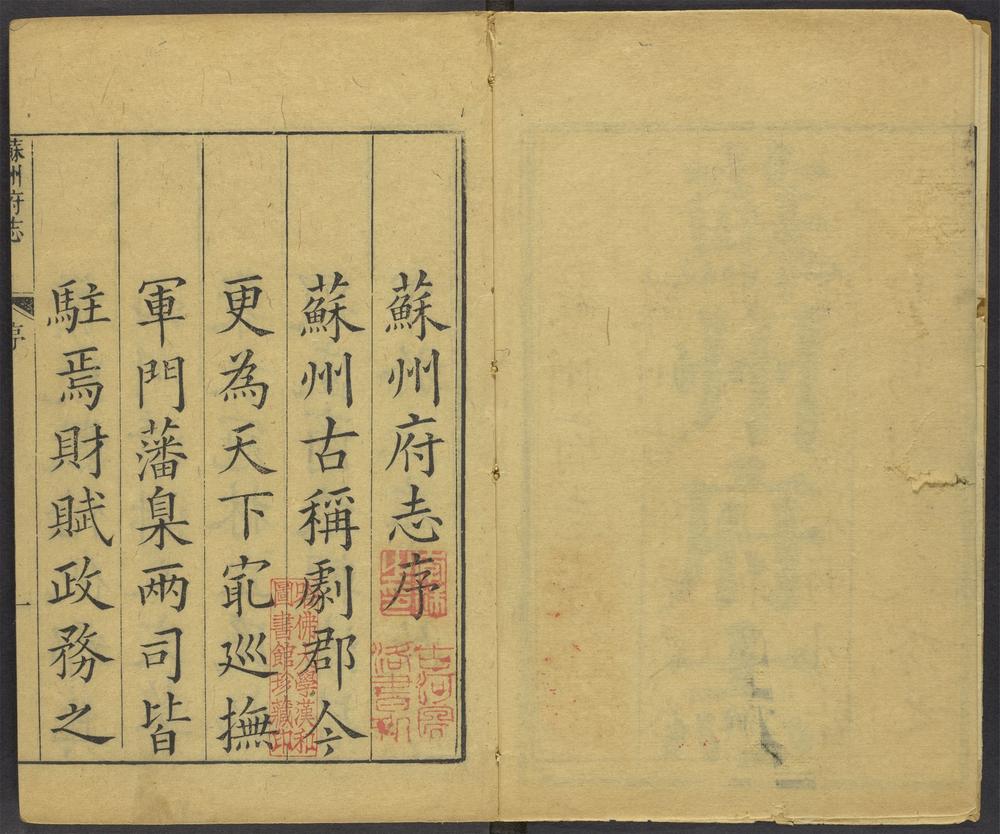 蘇州府志序
蘇州古稱劇郡今
更為天下冣巡撫
軍門藩臬兩司皆
駐焉財賦政務之
蘇州府志
序
一
哈佛大學漢和
圖書館珍藏印